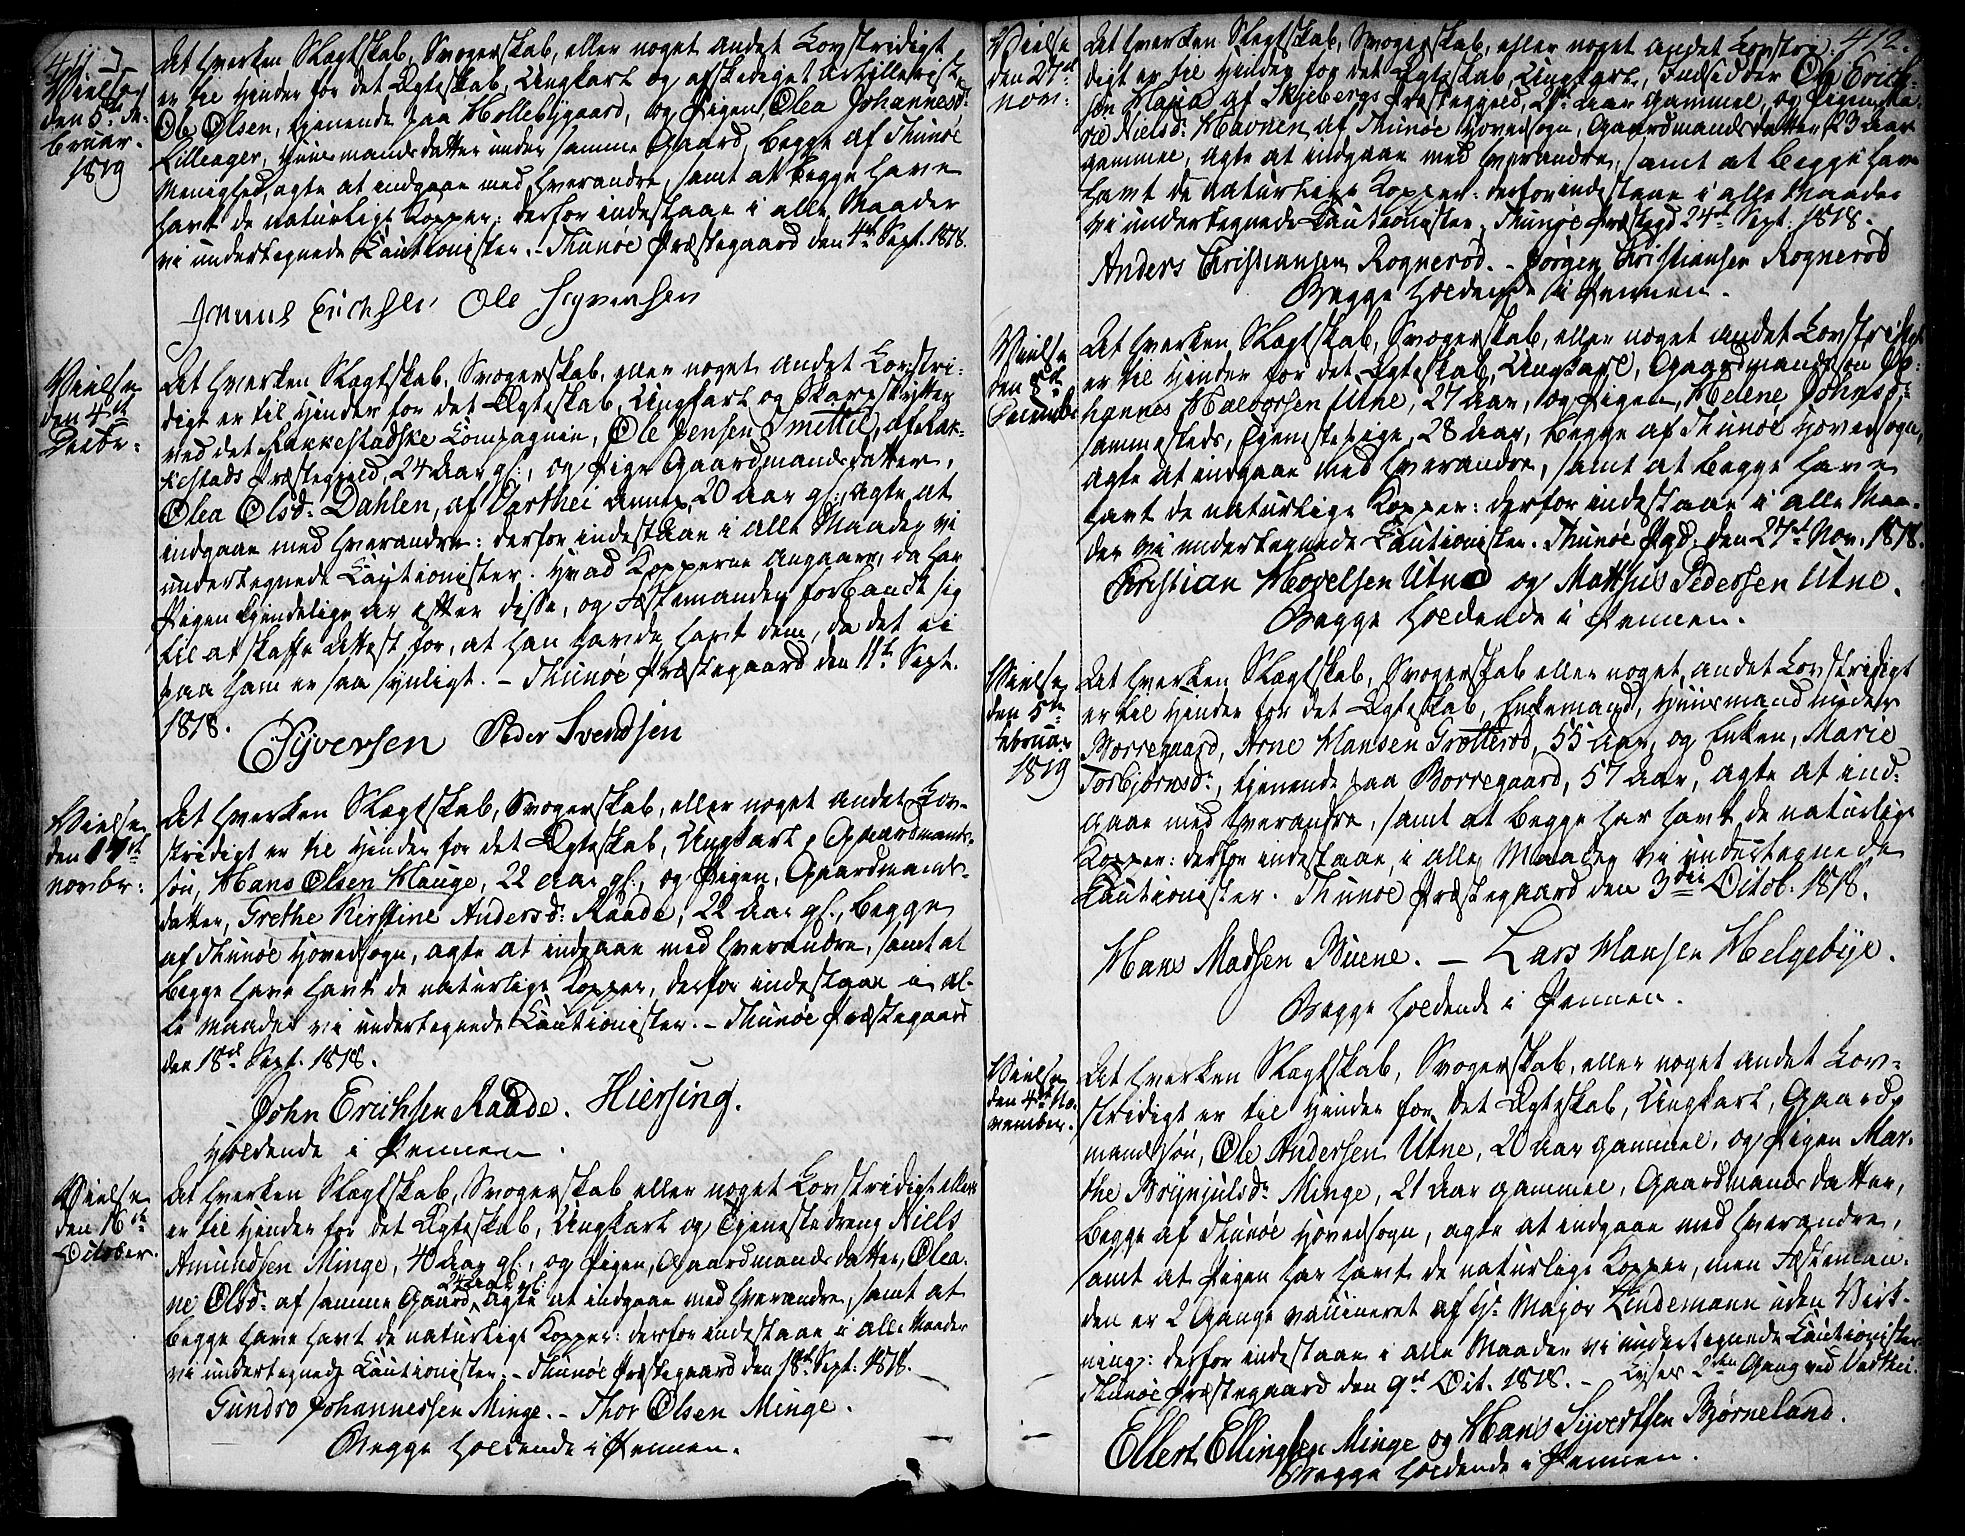 411
Vielse
den 5te Fe-
bruar.
1819
At hverken Slægtskab, Svogerskab, eller noget andet Lovstridigt
er til Hinder for det Ægteskab, Ungkarl og afskediget Artillerist
Ole Olsen, tjenende paa Hollebygaard, og Pigen, Olea Johannesd:
Lilleager, Huusmandsdatter under samme Gaard, begge af Thunøe
Menighed, agte at indgaae med hverandre, samt at begge have
havt de naturlige Kopper: derfor indestaae i alle Maader
vi undertegnede Cautionister. - Thunøe Præstegaard den 4de Sept. 1818.
Ole Syversen
Vielse
den 4de
Decbr.
At hverken Slægtskab, Svogerskab, eller noget andet Lovstri-
digt er til Hinder for det Ægteskab, Ungkarl og Skarpskytter
ved det Rakkestadske Compagnie, Ole Jensen Smettil, af Rak-
kestads Præstegjeld, 24 Aar gl:, og Pige Gaardmandsdatter,
Olea Olsd: Dahlen, af Varthei Annex, 20 Aar gl:, agte at
indgaae med hverandre: derfor indestaae i alle Maader vi
undertegnede Cautionister. Hvad Kopperne angaaer, da har
Pigen kjendelige ar efter disse, og Fæstemanden forbandt sig
til at skaffe Attest for, at han havde havt dem, da det ei
paa ham er saa synligt. - Thunøe Præstegaard den 11te Sept.
1818.
Syversen Peder Svendsen
Vielse
den 14de
novbr:
At hverken Slægtskab, Svogerskab, eller noget andet Lov-
stridigt er til Hinder for det Ægteskab, Ungkarl, Gaardmands-
søn, Hans Olsen Hauge, 22 Aar gl:, og Pigen, Gaardmands-
datter, Grethe Kirstine Andersd: Raade, 22 Aar gl., begge
af Thunøe Hovedsogn, agte at indgaae med hverandre, samt at
begge have havt de naturlige Kopper, derfor indestaae i al-
le Maader vi undertegnede Cautionister. - Thunøe Præstegaard
den 18de Sept. 1818.
John Erichsen Raade. Hiersing.
Holdende i Pennen.
Vielse
den 16de
October.
At hverken Slægtskab, Svogerskab eller noget Lovstridigt ellers
er til Hinder for det Ægteskab, Ungkarl og Tjenestedreng Niels
Amundsen Minge, 40 Aar gl:, og Pigen, Gaardmandsdatter, Olea-
24 Aar gl:
ne Olsd: af samme Gaard, agte at indgaae med hverandre, samt at
begge have havt de naturlige Kopper: derfor indestaae i alle Maader
vi undertegnede Cautionister. - Thunøe Præstegaard den 18de Sept: 1818.
Gundro Johannessen Minge. - Thor Olsen Minge.
Begge holdende i Pennen.
412.
Vielse
den 27de
Nov:
At hverken Slægtskab, Svogerskab, eller noget andet Lovstri-
digt er til Hinder for det Ægteskab, Ungkarl, Indsidder Ole Erich-
sen af Skjebergs Præstegjeld, Aar gammel, og Pigen Ma-
rie Nielsd: Havnen af Thunøe Hovedsogn, Gaardmandsdatter 23 Aar
gammel, agte at indgaae med hverandre, samt at begge have
havt de naturlige Kopper: derfor indestaae i alle Maader
vi undertegnede Cautionister. Thunøe Præstegd 24de Sept: 1818.
Anders Christiansen Rognerød. - Jørgen Christiansen Rognerød
Begge holdende i Pennen.
Vielse
den 8de
Decembr.
At hverken Slægtskab, Svogerskab, eller noget andet Lovstridigt
er til Hinder for det Ægteskab, Ungkarl, Gaardmandssøn Jo-
hannes Halvorsen Utne, 27 Aar, og Pigen, Helene Johnsd:
sammesteds, Tjenestepige, 28 Aar, begge af Thunøe Hovedsogn,
agte at indgaae med hverandre, samt at begge have
havt de naturlige Kopper: derfor indestaae i alle Maa-
der vi undertegnede Cautionister. Thunøe Pgd: den 27de Nov. 1818.
Christian Hovelsen Utne og Matthis Pedersen Utne.
Begge holdende i Pennen.
Vielse
den 5te
Februar
1819
At hverken Slægtskab, Svogerskab eller noget andet Lovstridigt
er til Hinder for det Ægteskab, Enkemand, Huusmand under
Borregaard, Arne Hansen Grøtterød, 55 Aar, og Enken, Marie
Torbjørnsd:, tjenende paa Borregaard, 57 Aar, agte at ind-
gaae med hverandre, samt at begge har havt de naturlige
Kopper: derfor indestaae i alle Maader vi undertegnede
Cautionister. Thunøe Præstegaard den 3die Octob. 1818.
Hans Madsen Buene. - Lars Hansen Helgebye.
Begge holdende i Pennen.
Vielse
den 4de No-
vember.
At hverken Slægtskab, Svogerskab, eller noget andet Lov-
stridigt er til Hinder for det Ægteskab, Ungkarl, Gaard-
mandssøn, Ole Andersen Utne, 20 Aar gammel, og Pigen Mar-
the Brynjulsdr Minge, 21 Aar gammel, Gaardmandsdatter,
begge af Thunøe Hovedsogn, agte at indgaae med hverandre,
samt at Pigen har havt de naturlige Kopper, men Fæsteman-
den er 2 Gange vaccineret af Hr. Major Lindemann uden Virk-
ning: derfor indestaae i alle Maader vi undertegnede Cautionister.
Thunøe Præstegaard den 9de Oct. 1818. - Lyses 2den Gang ved Varthei.
Ellert Ellingsen Minge og Hans Syvertsen Bjørneland.
Begge holdende i Pennen.